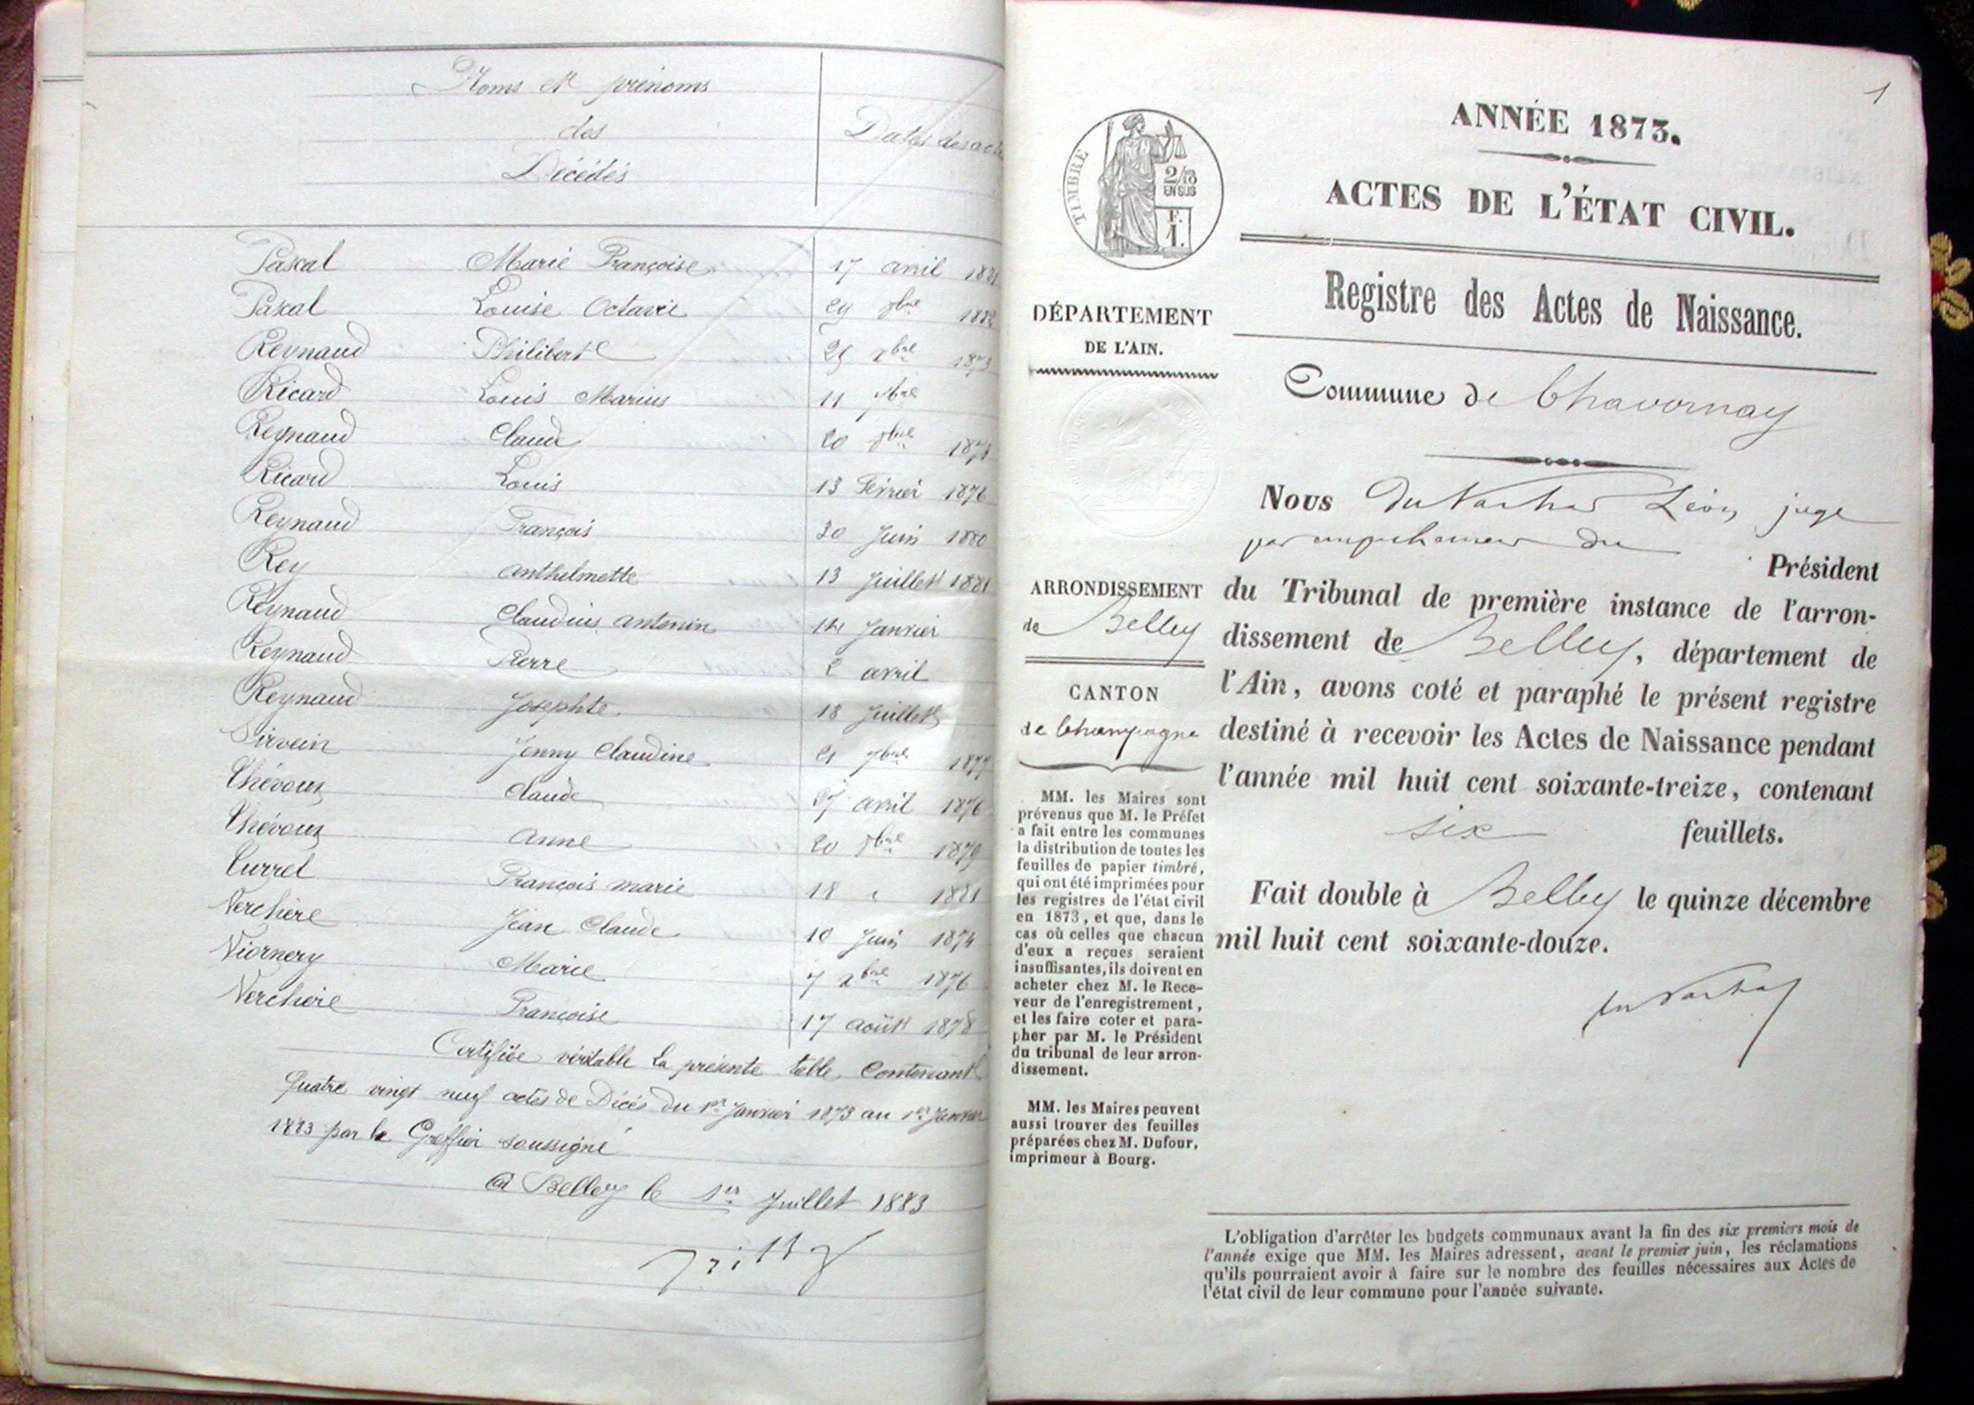 Noms et prénoms
des
Décédés
Dates des actes
Pascal Marie Françoise 17 avril
Pascal Louise Octavie 29 8bre 1882
Reynaud Philibert 25 xbre 1873
Ricard Louis Marius 11
Reynaud Claude 20 8bre
Ricard Louis 13 Février 1876
Reynaud François 30 Juin 1880
Rey anthelmette 13 Juillet 1881
Reynaud Claudius antonin 14 Janvier
Reynaud Pierre 2 avril
Reynaud Josephte 18 Juillet
Sirvein Jenny Claudine 21 7bre 1877
Thévoux Claude 27 avril 1876
Thévoux anne 20 8bre 1879
Turrel François marie 18 " 1881
Verchère Jean Claude 10 Juin 1874
Viornery Marie 7 xbre 1876
Verchère Françoise 17 août 1878
Certifiée véritable la présente table, Contenant
quatre vingt neuf actes de Décès du 1er Janvier 1873 au 1er Janvier
1883 par le Greffier soussigné
A Belley le 1er Juillet 1883
1
ANNÉE 1873.
ACTES DE L'ÉTAT CIVIL.
TIMBRE
2/10
EN SUS
F.
1.
Registre des Actes de Naissance.
DÉPARTEMENT
DE L'AIN.
Commune de Chavornay
Nous Léon, juge
par empêchement du
Président
ARRONDISSEMENT
de Belley
CANTON
de Champagne
du Tribunal de première instance de l'arron-
dissement de Belley, département de
l'Ain, avons coté et paraphé le présent registre
destiné à recevoir les Actes de Naissance pendant
l'année mil huit cent soixante-treize, contenant
six feuillets.
Fait double à Belley le quinze décembre
mil huit cent soixante-douze.
MM. les Maires sont
prévenus que M. le Préfet
a fait entre les communes
la distribution de toutes les
feuilles de papier timbré,
qui ont été imprimées pour
les registres de l'état civil
en 1873, et que, dans le
cas où celles que chacun
d'eux a reçues seraient
insuffisantes, ils doivent en
acheter chez M. le Rece-
veur de l'enregistrement,
et les faire coter et para-
pher par M. le Président
du tribunal de leur arron-
dissement.
MM. les Maires peuvent
aussi trouver des feuilles
préparées chez M. Dufour,
imprimeur à Bourg.
L'obligation d'arrêter les budgets communaux avant la fin des six premiers mois de
l'année exige que MM. les Maires adressent, avant le premier juin, les réclamations
qu'ils pourraient avoir à faire sur le nombre des feuilles nécessaires aux Actes de
l'état civil de leur commune pour l'année suivante.